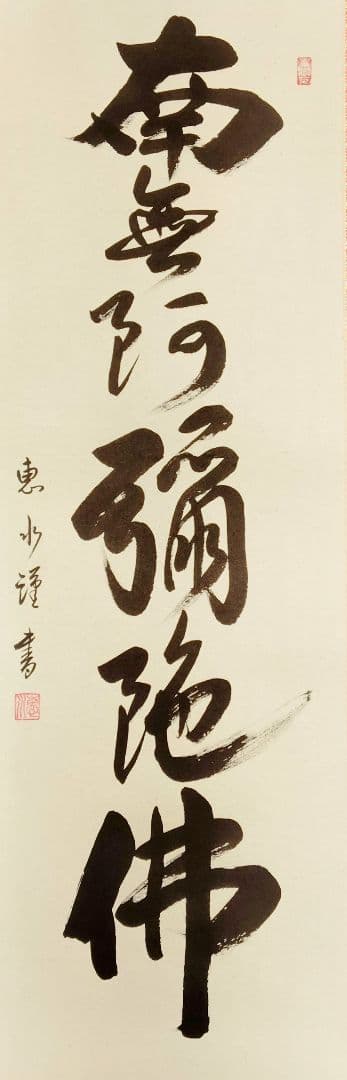 南無阿彌陀佛
惠水謹書